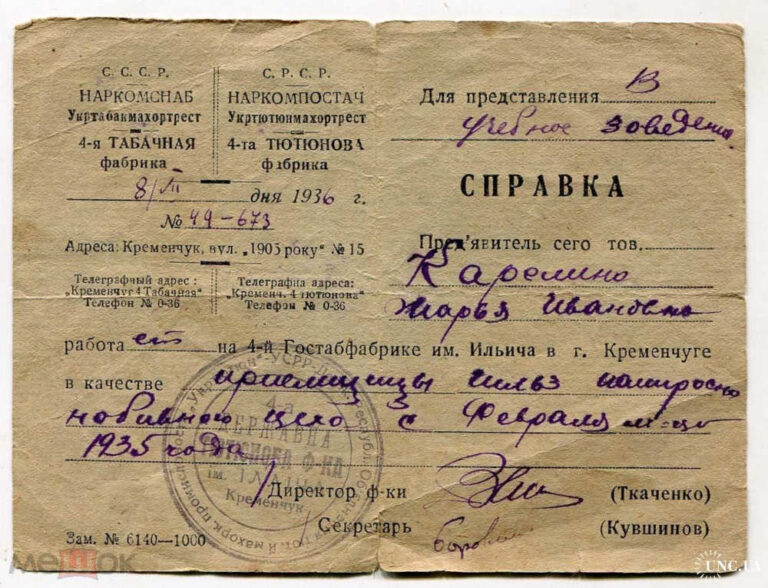 С. С. С. Р.
НАРКОМСНАБ
Укртабакмахортрест
4-я ТАБАЧНАЯ
фабрика
С. Р. С. Р.
НАРКОМПОСТАЧ
Укртютюнмахортрест
4-та ТЮТЮНОВА
фабрика
8/III дня 1936 г.
№ 49-673
Адреса: Кременчук, вул. „1905 року" № 15
Телеграфный адрес:
„Кременчуг 4 Табачная"
Телефон № 0-36
Телеграфна адреса:
„Кременч. 4 Тютюнова"
Телефон № 0-36
Для представления В
учебное заведение
СПРАВКА
Пред'явитель сего тов.
Карелина
Марья Ивановна
работает на 4-й Гостабфабрике им. Ильича в г. Кременчуге
в качестве приемщицы гильз папиросно
набивного цеха с Февраля м-ца
1935 года
Директор ф-ки (Ткаченко)
Секретарь (Кувшинов)
Зам. № 6140—1000
4-а
ДЕРЖАВНА
ТЮТЮНОВА Ф-КА
Кременчук
Мешок
UNC.UA